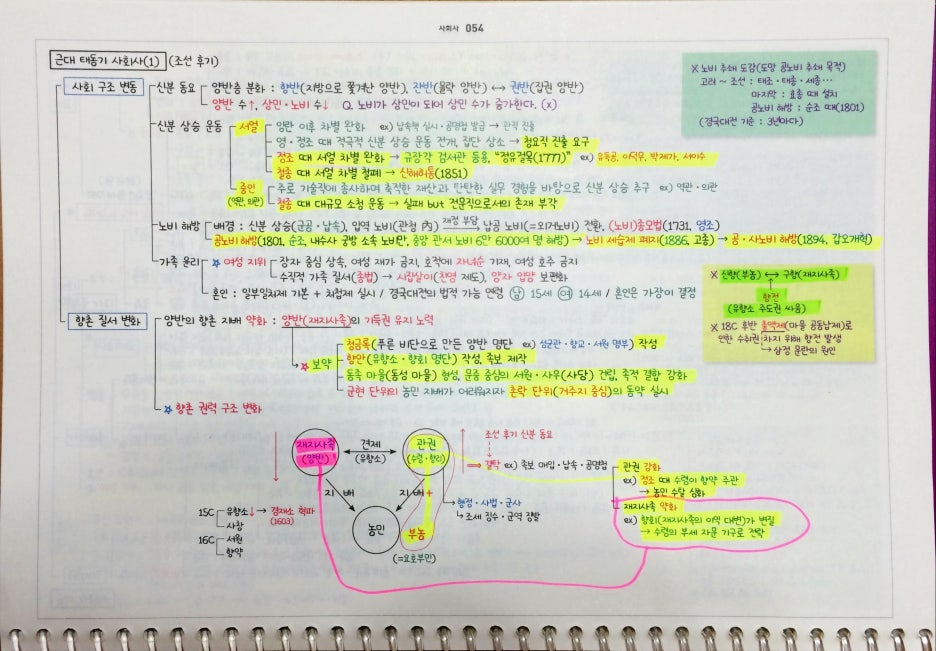 사회사 054
근대 태동기 사회사(1) (조선 후기)
※ 노비 추쇄 도감(도망 공노비 추쇄 목적)
고려 ~ 조선 : 태조·태종·세종…
마지막 : 효종 때 설치
공노비 해방 : 순조 때(1801)
(경국대전 기준 : 3년마다)
사회 구조 변동
신분 동요 양반층 분화 : 향반(지방으로 쫓겨간 양반), 잔반(몰락 양반) ↔ 권반(집권 양반)
양반 수↑, 상민·노비 수↓ Q. 노비가 상민이 되어 상민 수가 증가한다. (x)
신분 상승 운동 서얼 임란 이후 차별 완화 ex) 납속책 실시·공명첩 발급 → 관직 진출
영·정조 때 적극적 신분 상승 운동 전개, 집단 상소 → 청요직 진출 요구
정조 때 서얼 차별 완화 → 규장각 검서관 등용, "정유절목(1777)" ex) 유득공, 이덕무, 박제가, 서이수
철종 때 서얼 차별 철폐 → 신해허통(1851)
중인 주로 기술직에 종사하며 축적한 재산과 탄탄한 실무 경험을 바탕으로 신분 상승 추구 ex) 역관·의관
(역관, 의관) 철종 때 대규모 소청 운동 → 실패 but 전문직으로서의 존재 부각
노비 해방 배경 : 신분 상승(군공·납속), 입역 노비(관청 內) 재정 부담→ 납공 노비(=외거노비) 전환, (노비)종모법(1731, 영조)
공노비 해방(1801, 순조, 내수사 궁방 소속 노비만, 중앙 관서 노비 6만 6000여 명 해방) → 노비 세습제 폐지(1886, 고종) → 공·사노비 해방(1894, 갑오개혁)
가족 윤리 ☆ 여성 지위 장자 중심 상속, 여성 재가 금지, 호적에 자녀순 기재, 여성 호주 금지
수직적 가족 질서(종법) → 시집살이(친영 제도), 양자 입양 보편화
혼인 : 일부일처제 기본 + 처첩제 실시 / 경국대전의 법적 가능 연령 남 15세 여 14세 / 혼인은 가장이 결정
※ 신향(부농) ↔ 구향(재지사족)
향전
(유향소 주도권 싸움)
※ 18C 후반 총액제(마을 공동납제)로
인한 수취권 차지 위해 향전 발생
→ 삼정 문란의 원인
향촌 질서 변화
양반의 향촌 지배 약화 : 양반(재지사족)의 기득권 유지 노력
☆ 보약 청금록(푸른 비단으로 만든 양반 명단 ex) 성균관·향교·서원 명부) 작성
향안(유향소·향회 명단) 작성, 족보 제작
동족 마을(동성 마을) 형성, 문중 중심의 서원·사우(사당) 건립, 족적 결합 강화
군현 단위의 농민 지배가 어려워지자 촌락 단위(거주지 중심)의 동약 실시
☆ 향촌 권력 구조 변화
재지사족
(양반)
견제
(유향소)
관권
(수령·향리)
조선 후기 신분 동요
⇒ 결탁 ex) 족보 매입·납속·공명첩
지 배
지 배 +
농민
부농
(=요호부민)
행정·사법·군사
→ 조세 징수·군역 징발
관권 강화
ex) 정조 때 수령이 향약 주관
→ 농민 수탈 심화
재지사족 약화
ex) 향회(재지사족의 이익 대변)가 변질
→ 수령의 부세 자문 기구로 전락
15C 유향소↓ → 경재소 혁파
(1603)
사창
16C 서원
향약